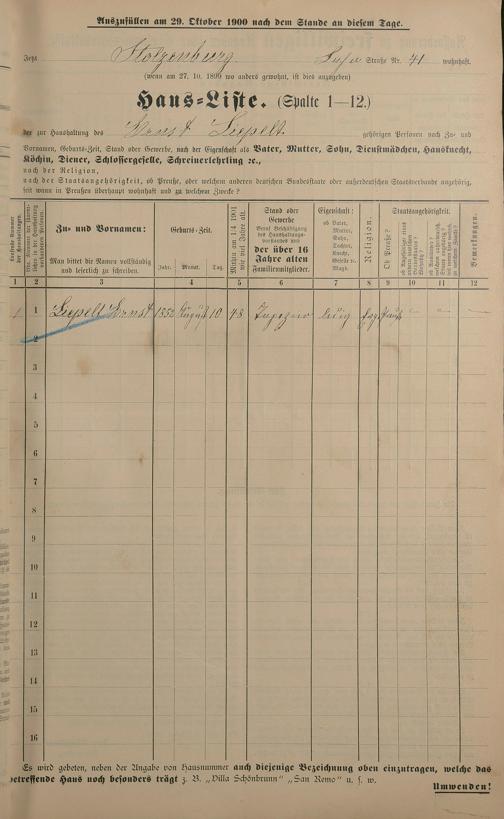 Auszufüllen am 29. Oktober 1900 nach dem Stande an diesem Tage.
Jetzt Stolzenburg Straße Nr. 41 wohnhaft.
(wenn am 27. 10. 1899 wo anders gewohnt, ist dies anzugeben)
Haus-Liste. (Spalte 1—12.)
der zur Haushaltung des Ernst Liepelt gehörigen Personen nach Zu- und
Vornamen, Geburts-Zeit, Stand oder Gewerbe, nach der Eigenschaft als Vater, Mutter, Sohn, Dienstmädchen, Hausknecht,
Köchin, Diener, Schlossergeselle, Schreinerlehrling ꝛc.,
nach der Religion,
nach der Staatsangehörigkeit, ob Preuße, oder welchem anderen deutschen Bundesstaate oder außerdeutschen Staatsverbande angehörig,
seit wann in Preußen überhaupt wohnhaft und zu welchem Zwecke?
Laufende Nummer der Haushaltungen.
Zu- und Vornamen:
Man bittet die Namen vollständig und leserlich zu schreiben.
Geburts-Zeit.
Jahr. Monat. Tag.
Mithin am 1/4 1901 wie viel Jahre alt.
Stand oder Gewerbe
Beruf Beschäftigung des Haushaltungsvorstandes und
der über 16 Jahre alten Familienmitglieder.
Eigenschaft:
ob Vater, Mutter, Sohn, Tochter, Knecht, Geselle ꝛc. Magd.
Religion.
Staatsangehörigkeit.
Ob Preuße?
Bemerkungen.
1 2 3 4 5 6 7 8 9 10 11 12
1 Liepelt Ernst 1852 August 10 48
2
3
4
5
6
7
8
9
10
11
12
13
14
15
16
Es wird gebeten, neben der Angabe von Hausnummer auch diejenige Bezeichnung oben einzutragen, welche das
betreffende Haus noch besonders trägt z. B. „Villa Schönbrunn“ „San Remo“ u. s. w.
Umwenden!